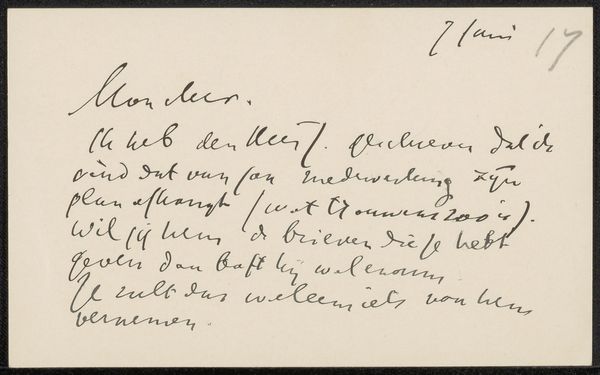 7 Juni 17
Mon cher.
Ik heb den Heer J. geschreven dat ik
vind dat van jou medewerking zijn
plan afhangt (wat trouwens zoo is).
Wil jij hem de brieven die je hebt
geven dan
Je zult dus wel eens iets van hem
vernemen.